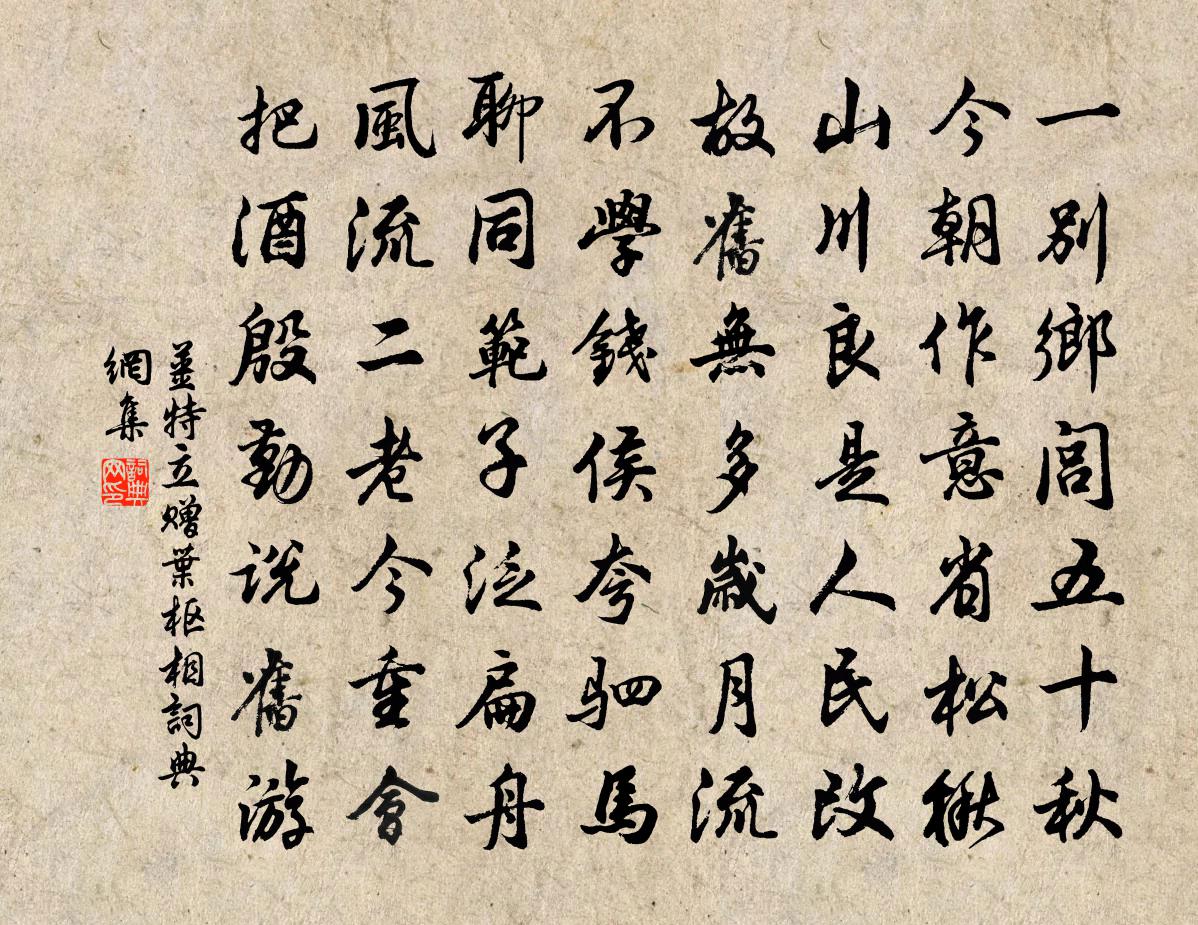 一别鄉閭五十秋
今朝作意省松楸
山川良是人民改
故舊無多歲月流
不學錢侯夸駟馬
聊同範子泛扁舟
風流二老今重會
把酒殷勤說舊游
薑特立贈葉樞相詞典
網集
詞典網印